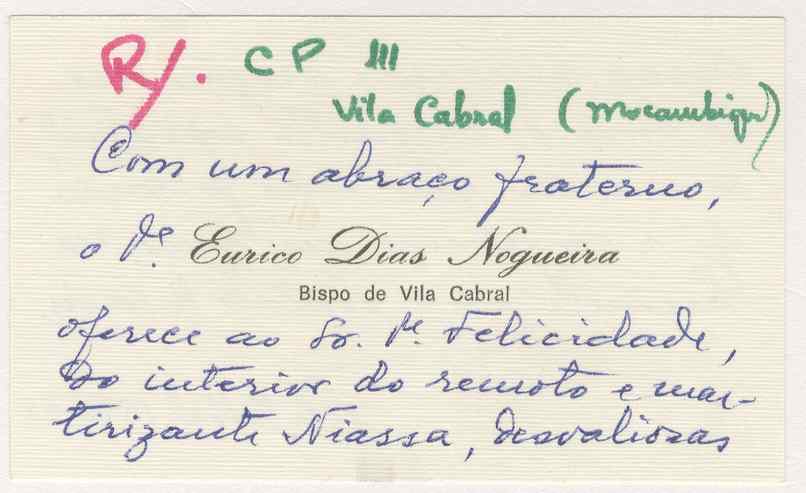 R/. C P III
Vila Cabral (Moçambique)
Com um abraço fraterno,
o Pe. Eurico Dias Nogueira
Bispo de Vila Cabral
oferece ao Sr. Pe. Felicidade,
do interior do remoto e mar-
tirizante Niassa, desvaliosas